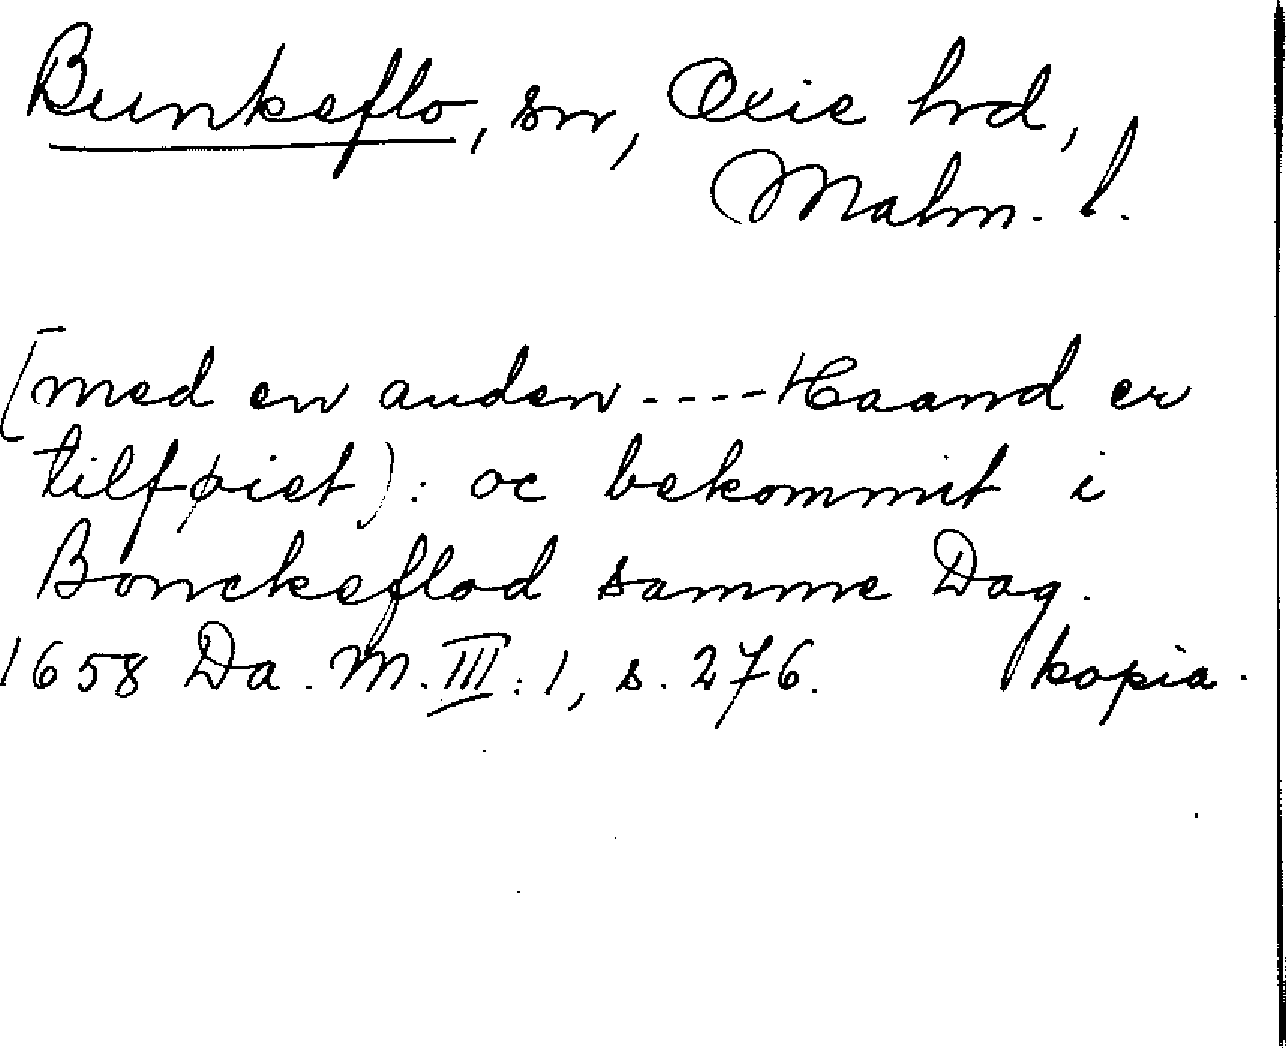 Bunkeflo, sn, Oxie hd,
Malm. l.
[med en anden ---- Haand er
tilføiet): oc bekommit i
Bonckeflod samme Dag.
1658 Da. M. III: 1, s. 276. kopia.